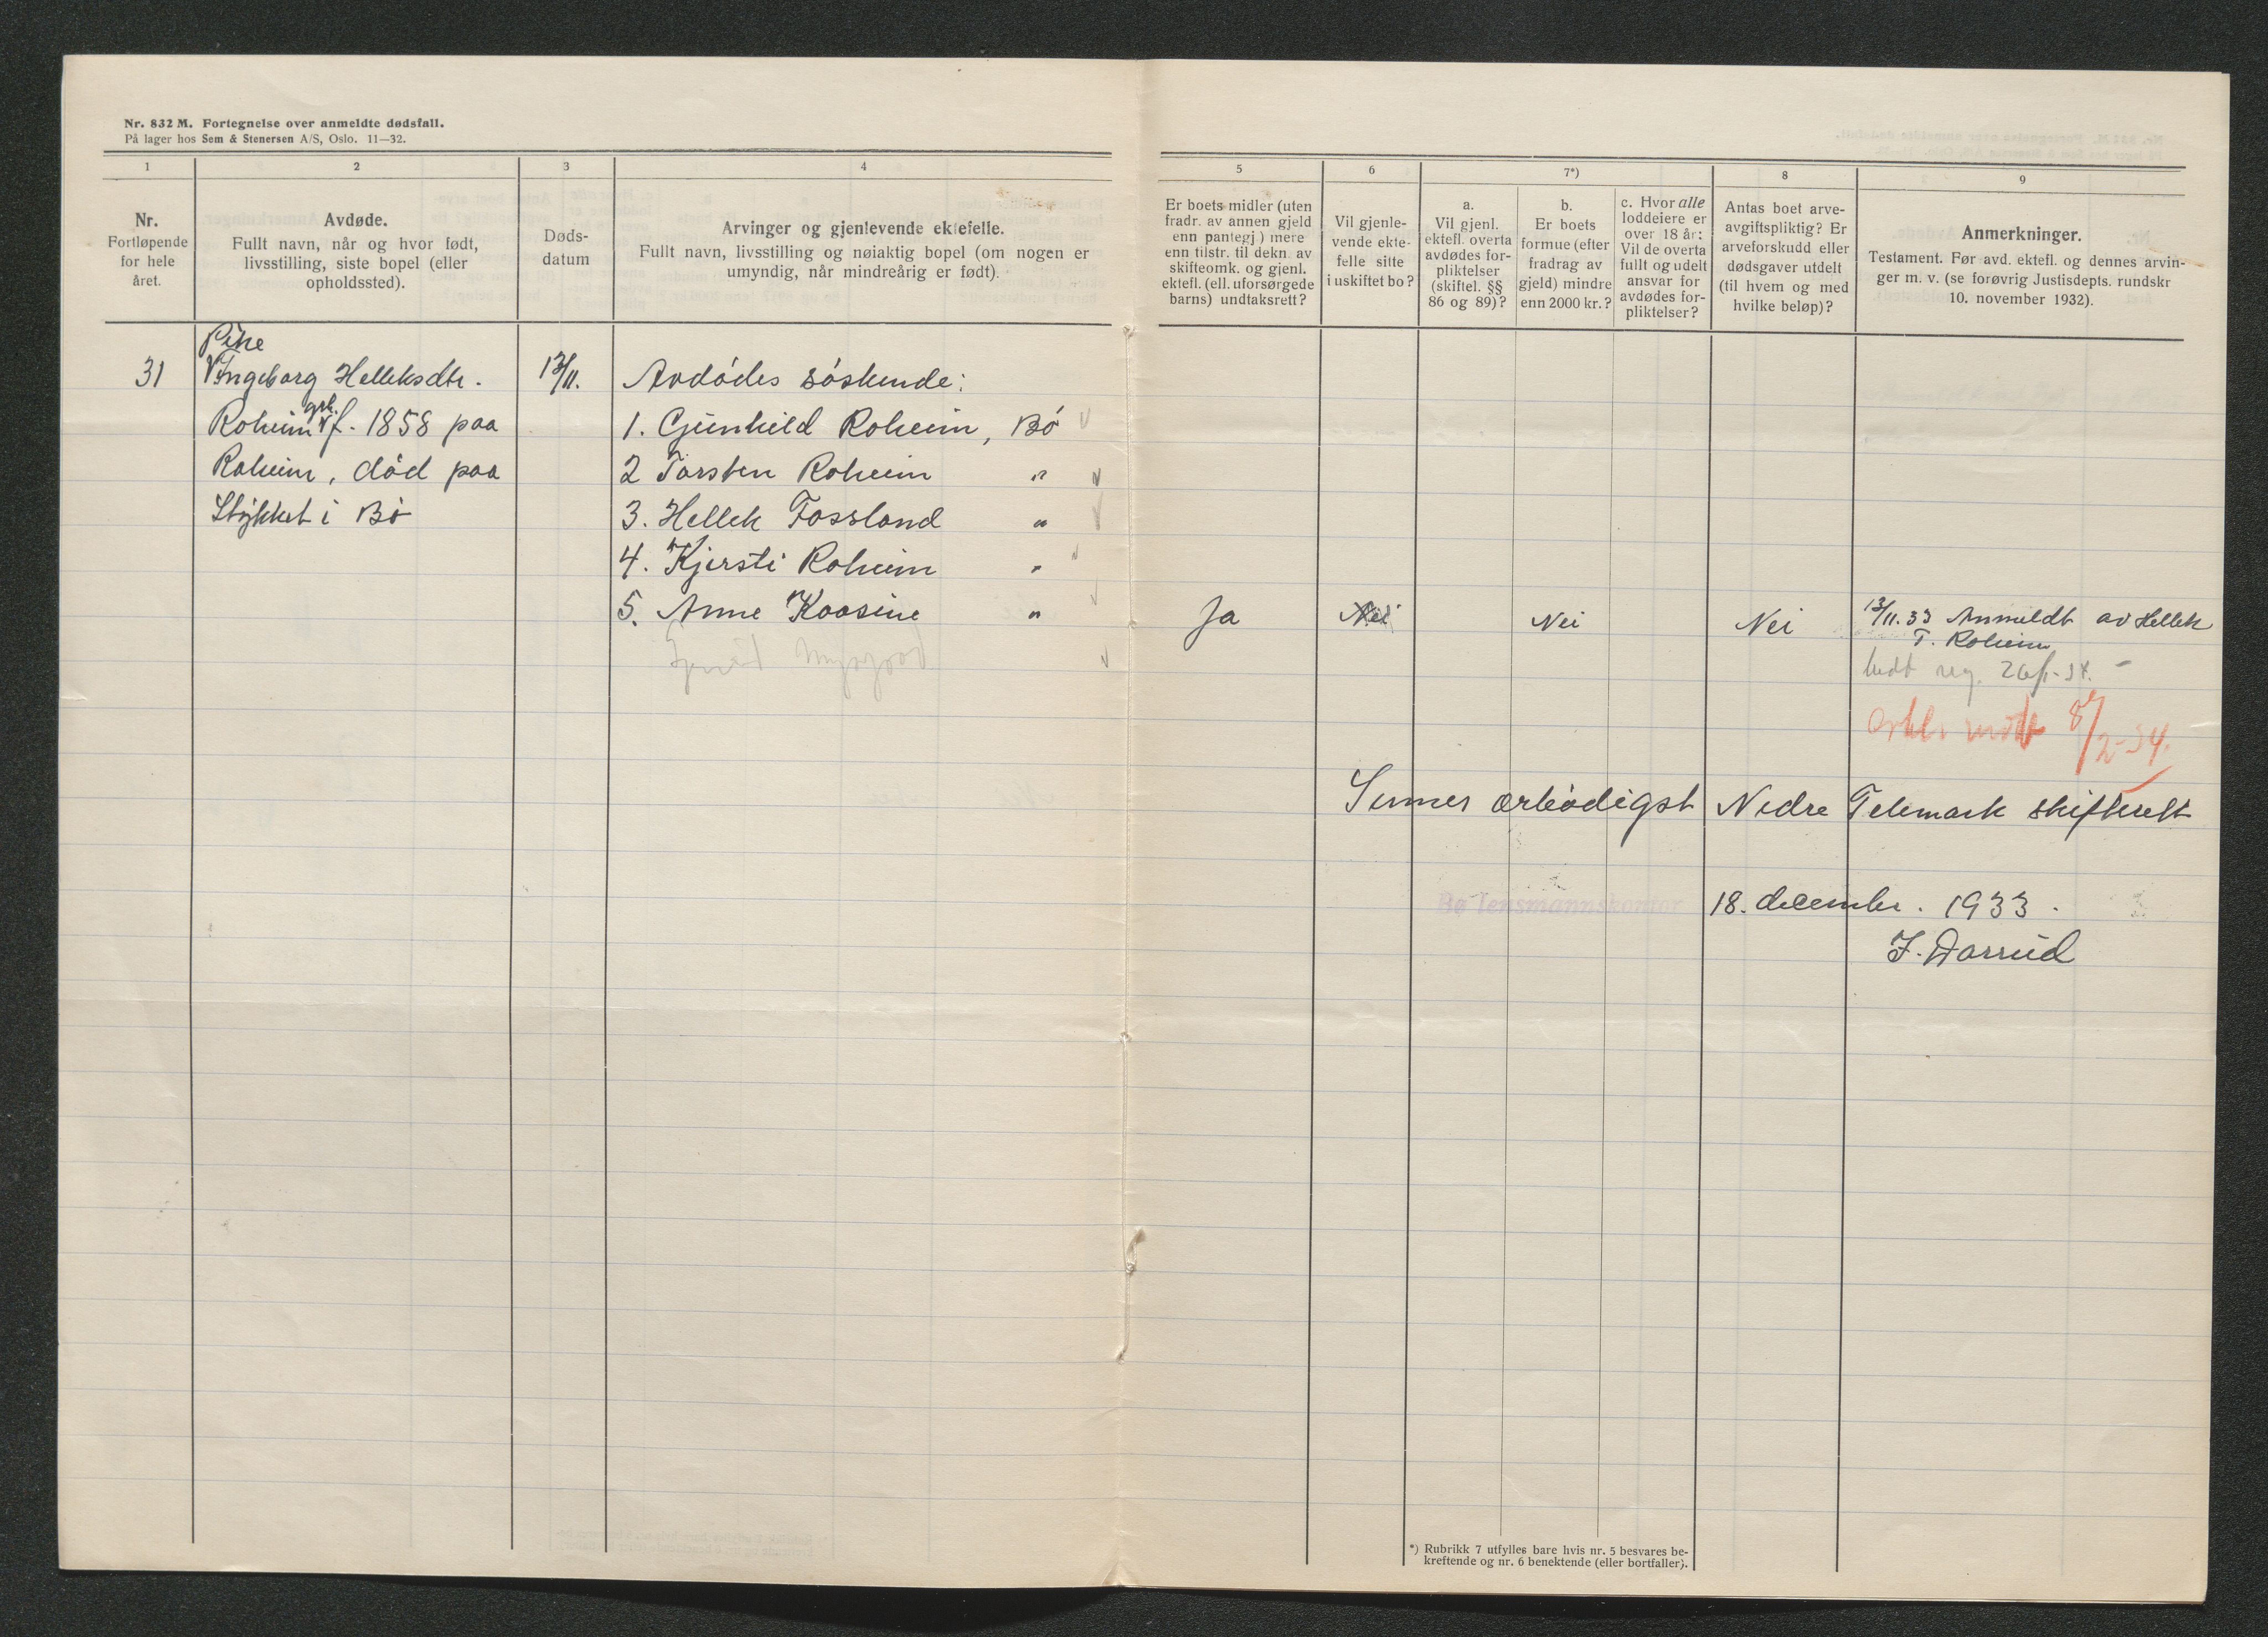 Nr. 832 M. Fortegnelse over anmeldte dødsfall.
På lager hos Sem & Stenersen A/S, Oslo. 11—32.
1
2
3
4
5
6
7*)
8
9
Nr.
Fortløpende
for hele
året.
Avdøde.
Fullt navn, når og hvor født,
livsstilling, siste bopel (eller
opholdssted).
Døds-
datum
Arvinger og gjenlevende ektefelle.
Fullt navn, livsstilling og nøiaktig bopel (om nogen er
umyndig, når mindreårig er født).
Er boets midler (uten
fradr. av annen gjeld
enn pantegj) mere
enn tilstr. til dekn. av
skifteomk. og gjenl.
ektefl. (ell. uforsørgede
barns) undtaksrett?
Vil gjenle-
vende ekte-
felle sitte
i uskiftet bo?
a.
Vil gjenl.
ektefl. overta
avdødes for-
pliktelser
(skiftel. §§
86 og 89)?
b.
Er boets
formue (efter
fradrag av
gjeld) mindre
enn 2000 kr.?
c. Hvor alle
loddeiere er
over 18 år:
Vil de overta
fullt og udelt
ansvar for
avdødes for-
pliktelser?
Antas boet arve-
avgiftspliktig? Er
arveforskudd eller
dødsgaver utdelt
(til hvem og med
hvilke beløp)?
Anmerkninger.
Testament. Før avd. ektefl. og dennes arvin-
ger m. v. (se forøvrig Justisdepts. rundskr
10. november 1932).
Pike
31 Ingeborg Helleksdtr. 13/11. Avdødes søskende:
Roheim grk. f. 1858 paa 1. Gunhild Roheim, Bø
Roheim, død paa 2 Torsten Roheim "
Stykket i Bø 3. Hellek Fossland "
4. Kjersti Roheim "
5. Anne Kaasine " Ja Nei Nei Nei 13/11.33 Anmeldt av Hellek
T. Roheim
reg. 26/1-34.
8/2-34.
Sennes ærbødigst Nedre Telemark skifterett
Bø lensmannskontor 18. december. 1933.
J. Darrud
*) Rubrikk 7 utfylles bare hvis nr. 5 besvares be-
kreftende og nr. 6 benektende (eller bortfaller).